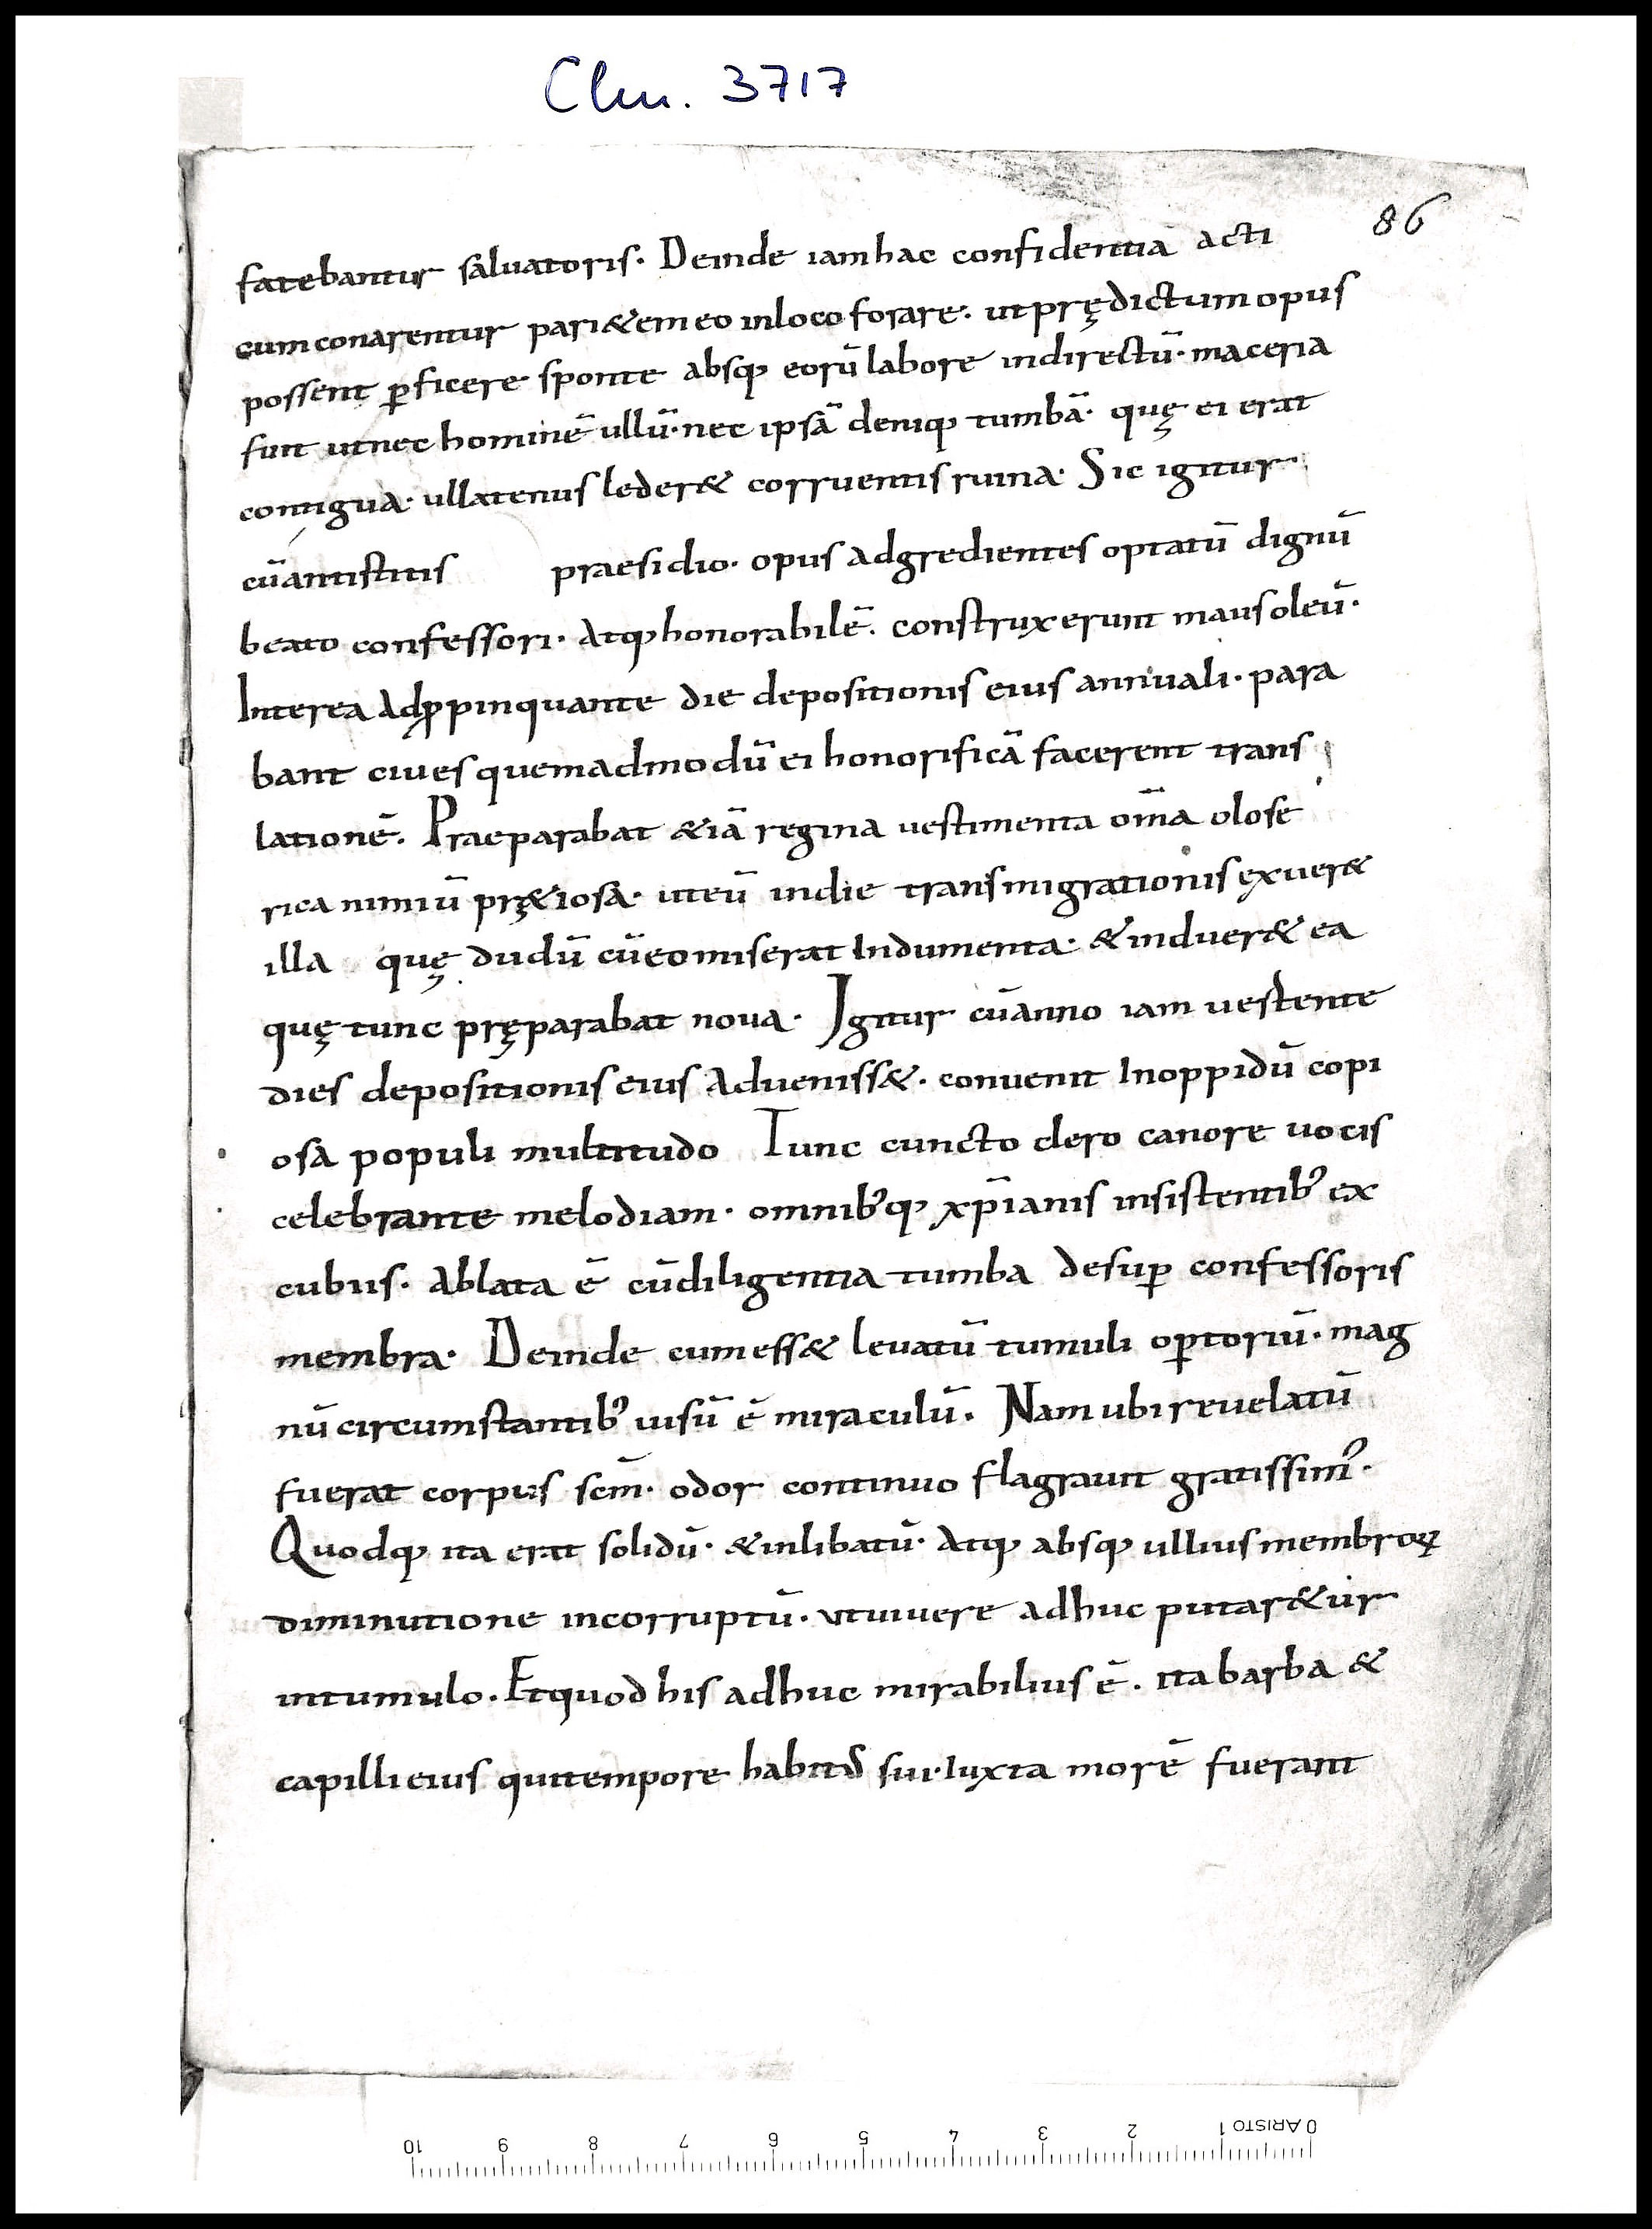 Clm. 3717
86
fatebantur saluatoris. Deinde iam hac confidentia acti
cum conarentur pari&em eo inloco forare. ut prędictum opus
possent ꝑficere sponte absq; eorū labore indirectū. maceria
fuit ut nec hominē ullū. nec ipsā deniq; tumbā. quę ei erat
contigua. ullatenus leder& corruentis ruina. Sic igitur
cū antistitis praesidio. opus adgredientes optatū dignū
beato confessori. atq; honorabilē. construxerunt mausoleū.
Interea adꝓpinquante die depositionis eius annuali. para
bant ciues quemadmodū ei honorificā facerent trans
lationē. Praeparabat &iā regina uestimenta om̄a olose
rica nimiū prę&iosa. ut eū indie transmigrationis exuer&
illa quę dudū cū eo miserat Indumenta. & induer& ea
quę tunc pręparabat noua. Igitur cū anno iam uestente
dies depositionis eius adueniss&. conuenit Inoppidū copi
osa populi multitudo Tunc cuncto clero canore uocis
celebrante melodiam. omnib;q; xp̄ianis insistentib; ex
cubiis. Ablata ē cū diligentia tumba desuꝑ confessoris
membra. Deinde cum ess& leuatū tumuli oꝑtoriū. mag
nū circumstantib; uisū ē miraculū. Nam ubi reuelatū
fuerat corpus scm̄. odor continuo flagrauit gratissim᾿.
Quodq; ita erat solidū. & inlibatū. atq; absq; ullius membroꝝ
diminutione incorruptū. ut uiuere adhuc putar& uir
intumulo. Et quod his adhuc mirabilius ē. ita barba &
capilli eius qui tempore habitus sui. Iuxta morē fuerant
10 9 8 7 6 5 4 3 2 1 ARISTO 0